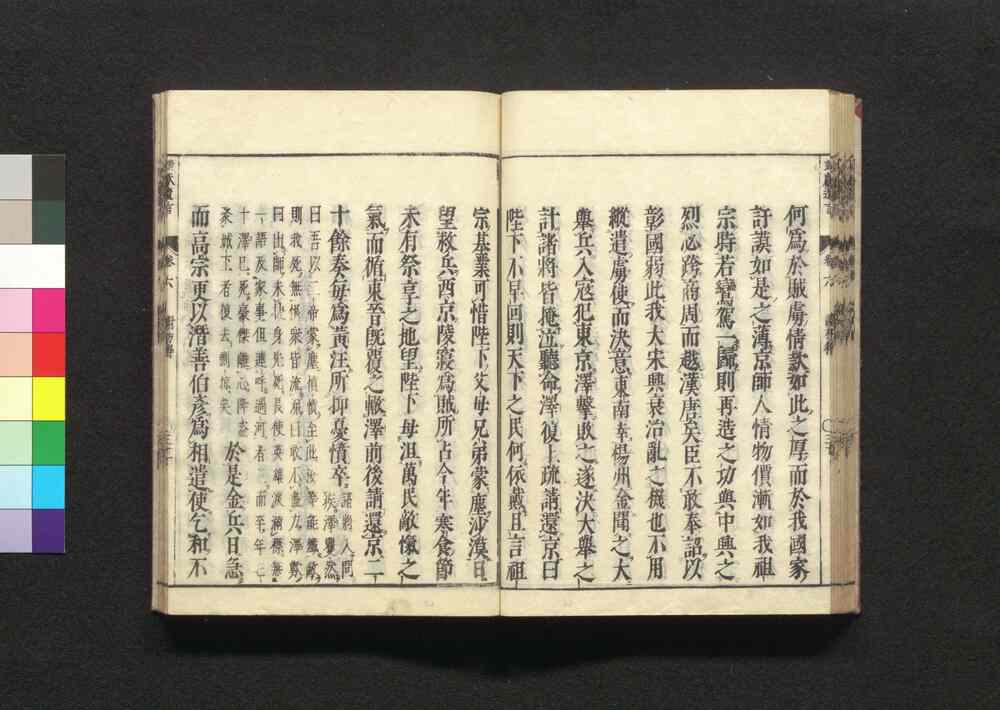 何爲於賊虜情款如此之厚而於我國家
訏謨如是之薄京師人情物價漸如我祖
宗時若鸞駕一歸則再造之功與中興之
烈必跨商周而越漢唐矣臣不敢奉詔以
彰國弱此我大宋興衰治亂之機也不用
縱遣虜使而決意東南幸楊州金聞之大
舉兵入寇犯東京澤擊敗之遂決大舉之
計諸將皆掩泣聽命澤復上疏請還京曰
陛下不早回則天下之民何依戴且言祖
宗基業可惜陛下父母兄弟蒙塵沙漠日
望救兵西京陵寢爲賊所占今年寒食節
未有祭享之地望陛下毋沮萬民敵愾之
氣而循東晉既覆之轍澤前後請還京二
十餘奏每爲黃汪所抑憂憤卒
諸將入問
疾澤矍然
曰吾以二帝蒙塵積憤至此汝等能殲敵
則我死無恨衆皆流涕曰敢不盡力澤歎
曰出師未捷身先死長使英雄淚滿襟無
一語及家事但連呼過河者三而卒年三
於是金兵日急
而高宗更以潛善伯彥爲相遣使乞和不
卷六